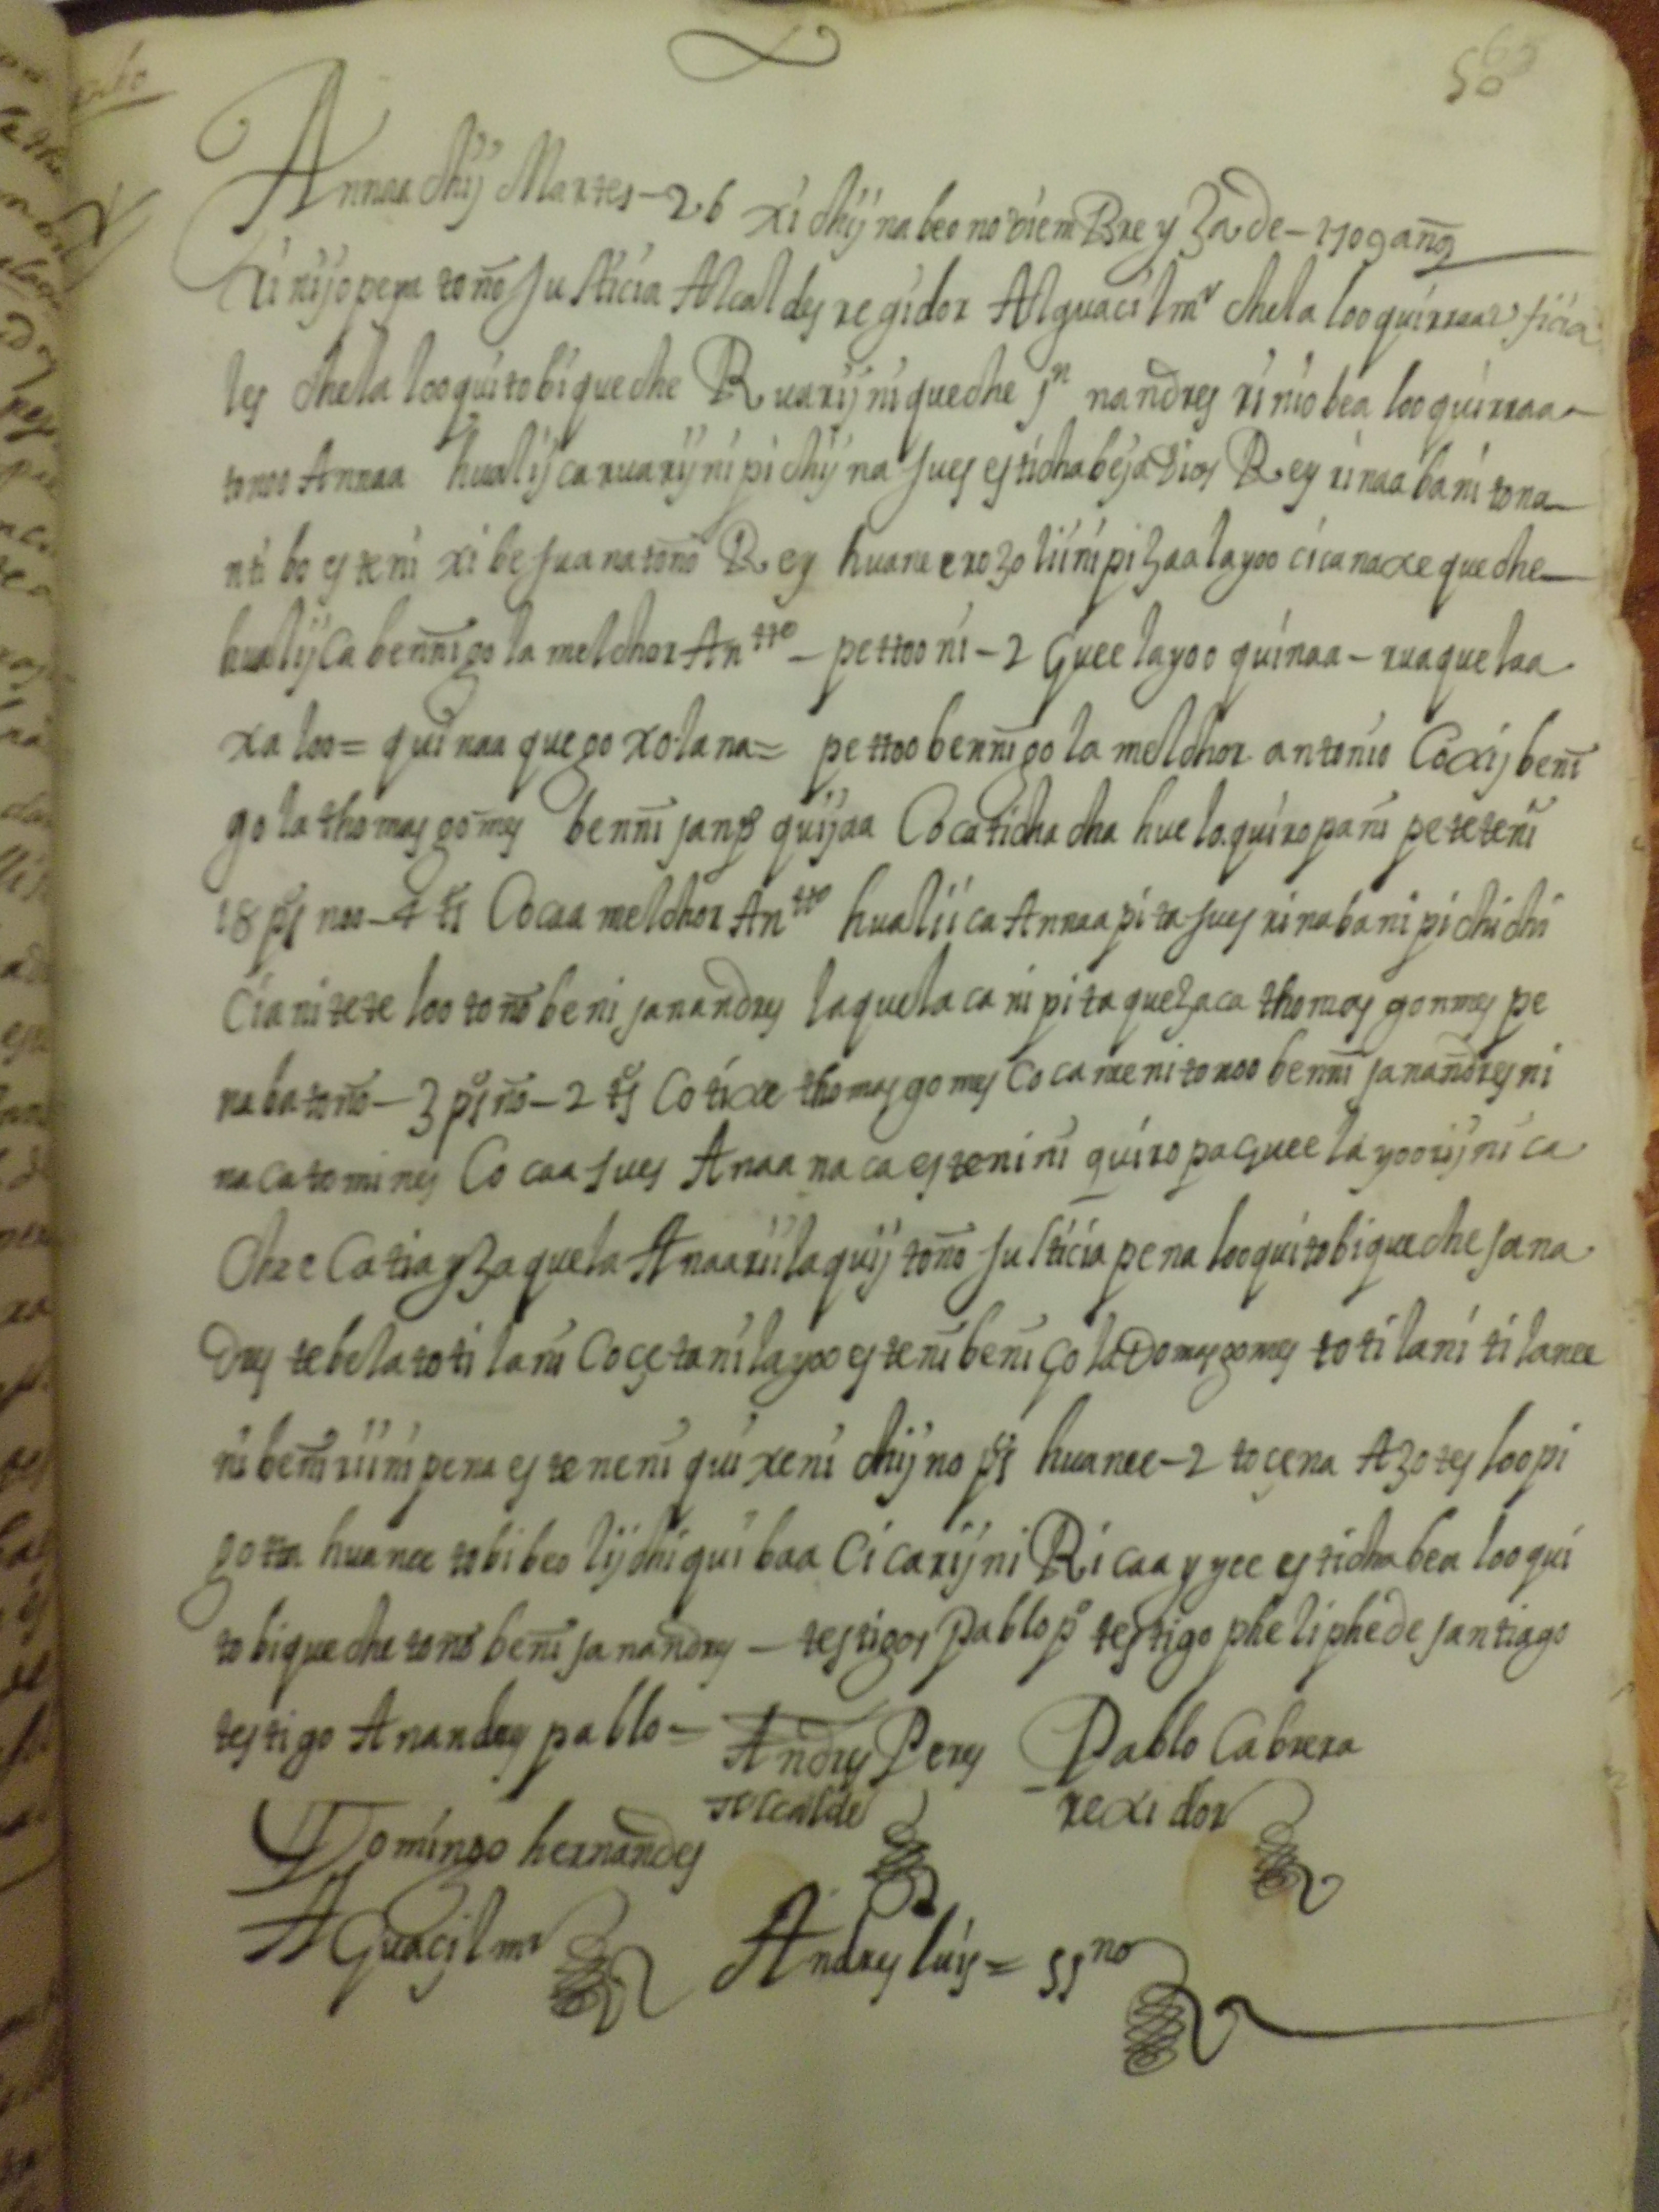 56
Annaa chij Martes – 26 xi chij na beo nobiemBre yza de – 1709 anõs
ri nijo pena tonõ Justicia Alcaldes regidor Alguacil mr chela loo quirraa oficia
les chela loo quitobi queche Ruarijni queche sn nandres ri niobea loo quirraa
tonoo Annaa hualijca ruarijni pi chij na Jues esticha beja Dios Rey rinaabani tona
nti bo esteni xi beJuana tonõ Rey huane erozo liini pizaa layoo cica naxe queche
hualijca bennĩ gola melchor Antto – pettoo ni – 2 Guee layoo quinaa – ruaquelaa
xaloo = quinaa quego xolana = pettoo bennĩ gola melchor antonio Coxij benĩ
gola thomas gomes bennĩ san po quijaa Cocaticha cha huelo quiropa ni pe te tenĩ
18 ps noo – 4 ts Cocaa melchor Antto hualiica Annaa pita Jues rinabani pi chi chi
Ciani tete loo tonõ beni sanandres laquelacani pita quezaca thomas gonmes pe
naba tonõ – 3 ps nõ – 2 ts Cotixe thomas gomes Cocaneeni tonoo bennĩ sanandres ni
naca tomines Cocaa Jues Anaa naca esteni ni quiropa Guee layoo rijni ca
chee Catia yza quela Anaa riilaquij tonõ Justicia pena loo quitobi queche sana
Dres tebela toti lani Coçetani layoo estenĩ benĩ gola Domas gomes toti lani ti lanee
ni benĩ riini pena estenenĩ quixeni chijno ps huanee – 2 toçena Azotes loo pi
gotta huanee tobi beo lijchi quibaa Cicarijni Ricaa yyee esticha bea loo qui
tobi queche tonõ benĩ sanandres – testigos Pablo po testigo pheliphe de santiago
testigo Anandres pablo =
Andres Peres Pablo Cabrera
Alcalde rexidor
Domingo hernandes
AGuacil mr Andres luis = ssno